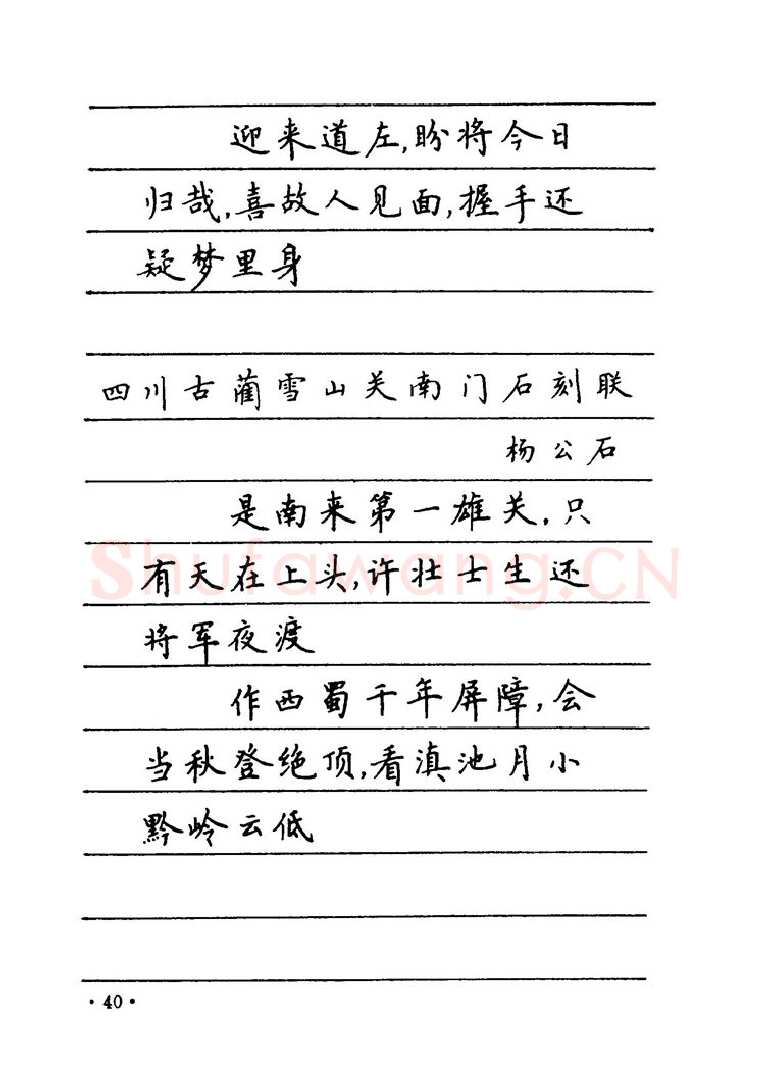 迎来道左,盼将今日
归哉,喜故人见面,握手还
疑梦里身
四川古蔺雪山关南门石刻联
杨公石
是南来第一雄关,只
有天在上头,许壮士生还
将军夜渡
作西蜀千年屏障,会
当秋登绝顶,看滇池月小
黔岭云低
·40·
Shufawang.CN